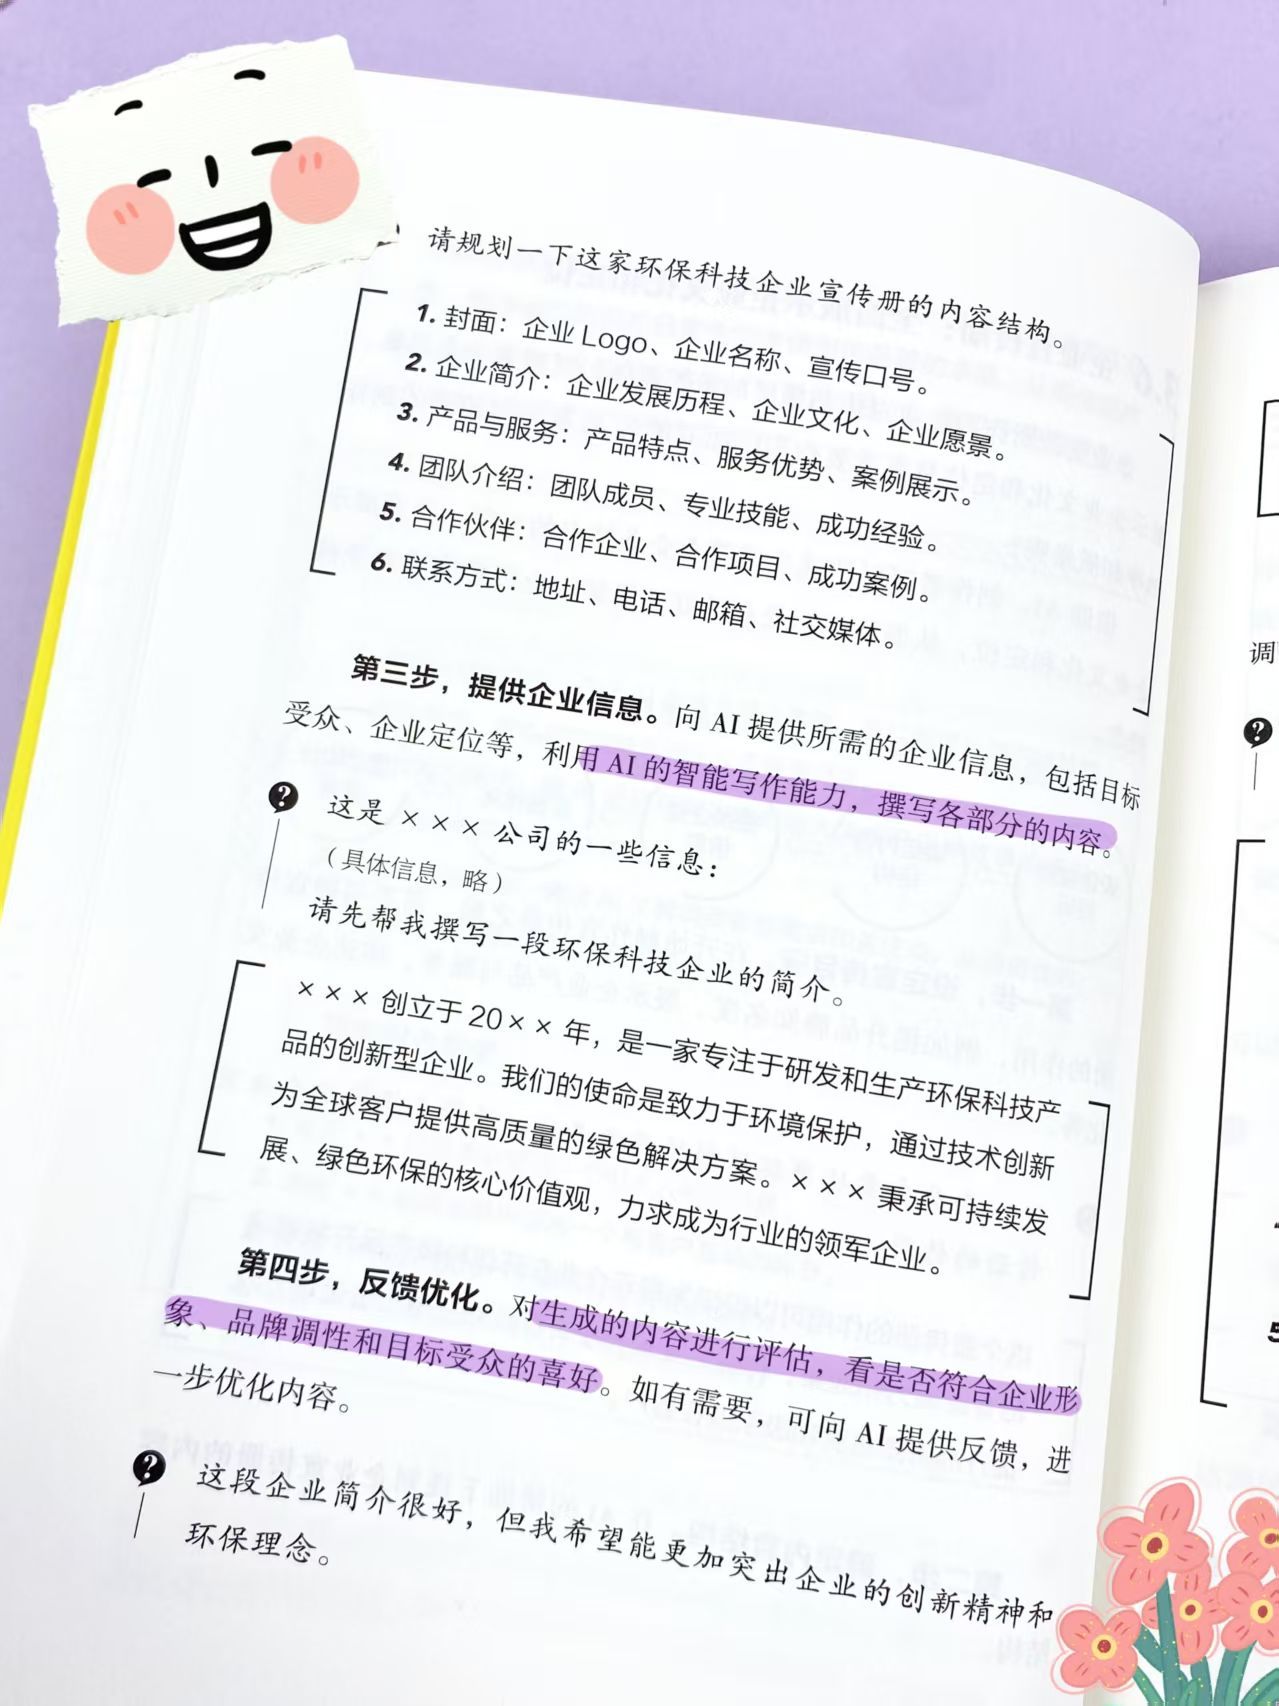 请规划一下这家环保科技企业宣传册的内容结构。
1. 封面：企业 Logo、企业名称、宣传口号。
2. 企业简介：企业发展历程、企业文化、企业愿景。
3. 产品与服务：产品特点、服务优势、案例展示。
4. 团队介绍：团队成员、专业技能、成功经验。
5. 合作伙伴：合作企业、合作项目、成功案例。
6. 联系方式：地址、电话、邮箱、社交媒体。
第三步，提供企业信息。向 AI 提供所需的企业信息，包括目标
受众、企业定位等，利用 AI 的智能写作能力，撰写各部分的内容。
? 这是 ××× 公司的一些信息：
（具体信息，略）
请先帮我撰写一段环保科技企业的简介。
××× 创立于 20×× 年，是一家专注于研发和生产环保科技产
品的创新型企业。我们的使命是致力于环境保护，通过技术创新
为全球客户提供高质量的绿色解决方案。××× 秉承可持续发
展、绿色环保的核心价值观，力求成为行业的领军企业。
第四步，反馈优化。对生成的内容进行评估，看是否符合企业形
象、品牌调性和目标受众的喜好。如有需要，可向 AI 提供反馈，进
一步优化内容。
? 这段企业简介很好，但我希望能更加突出企业的创新精神和
环保理念。
调
?
5